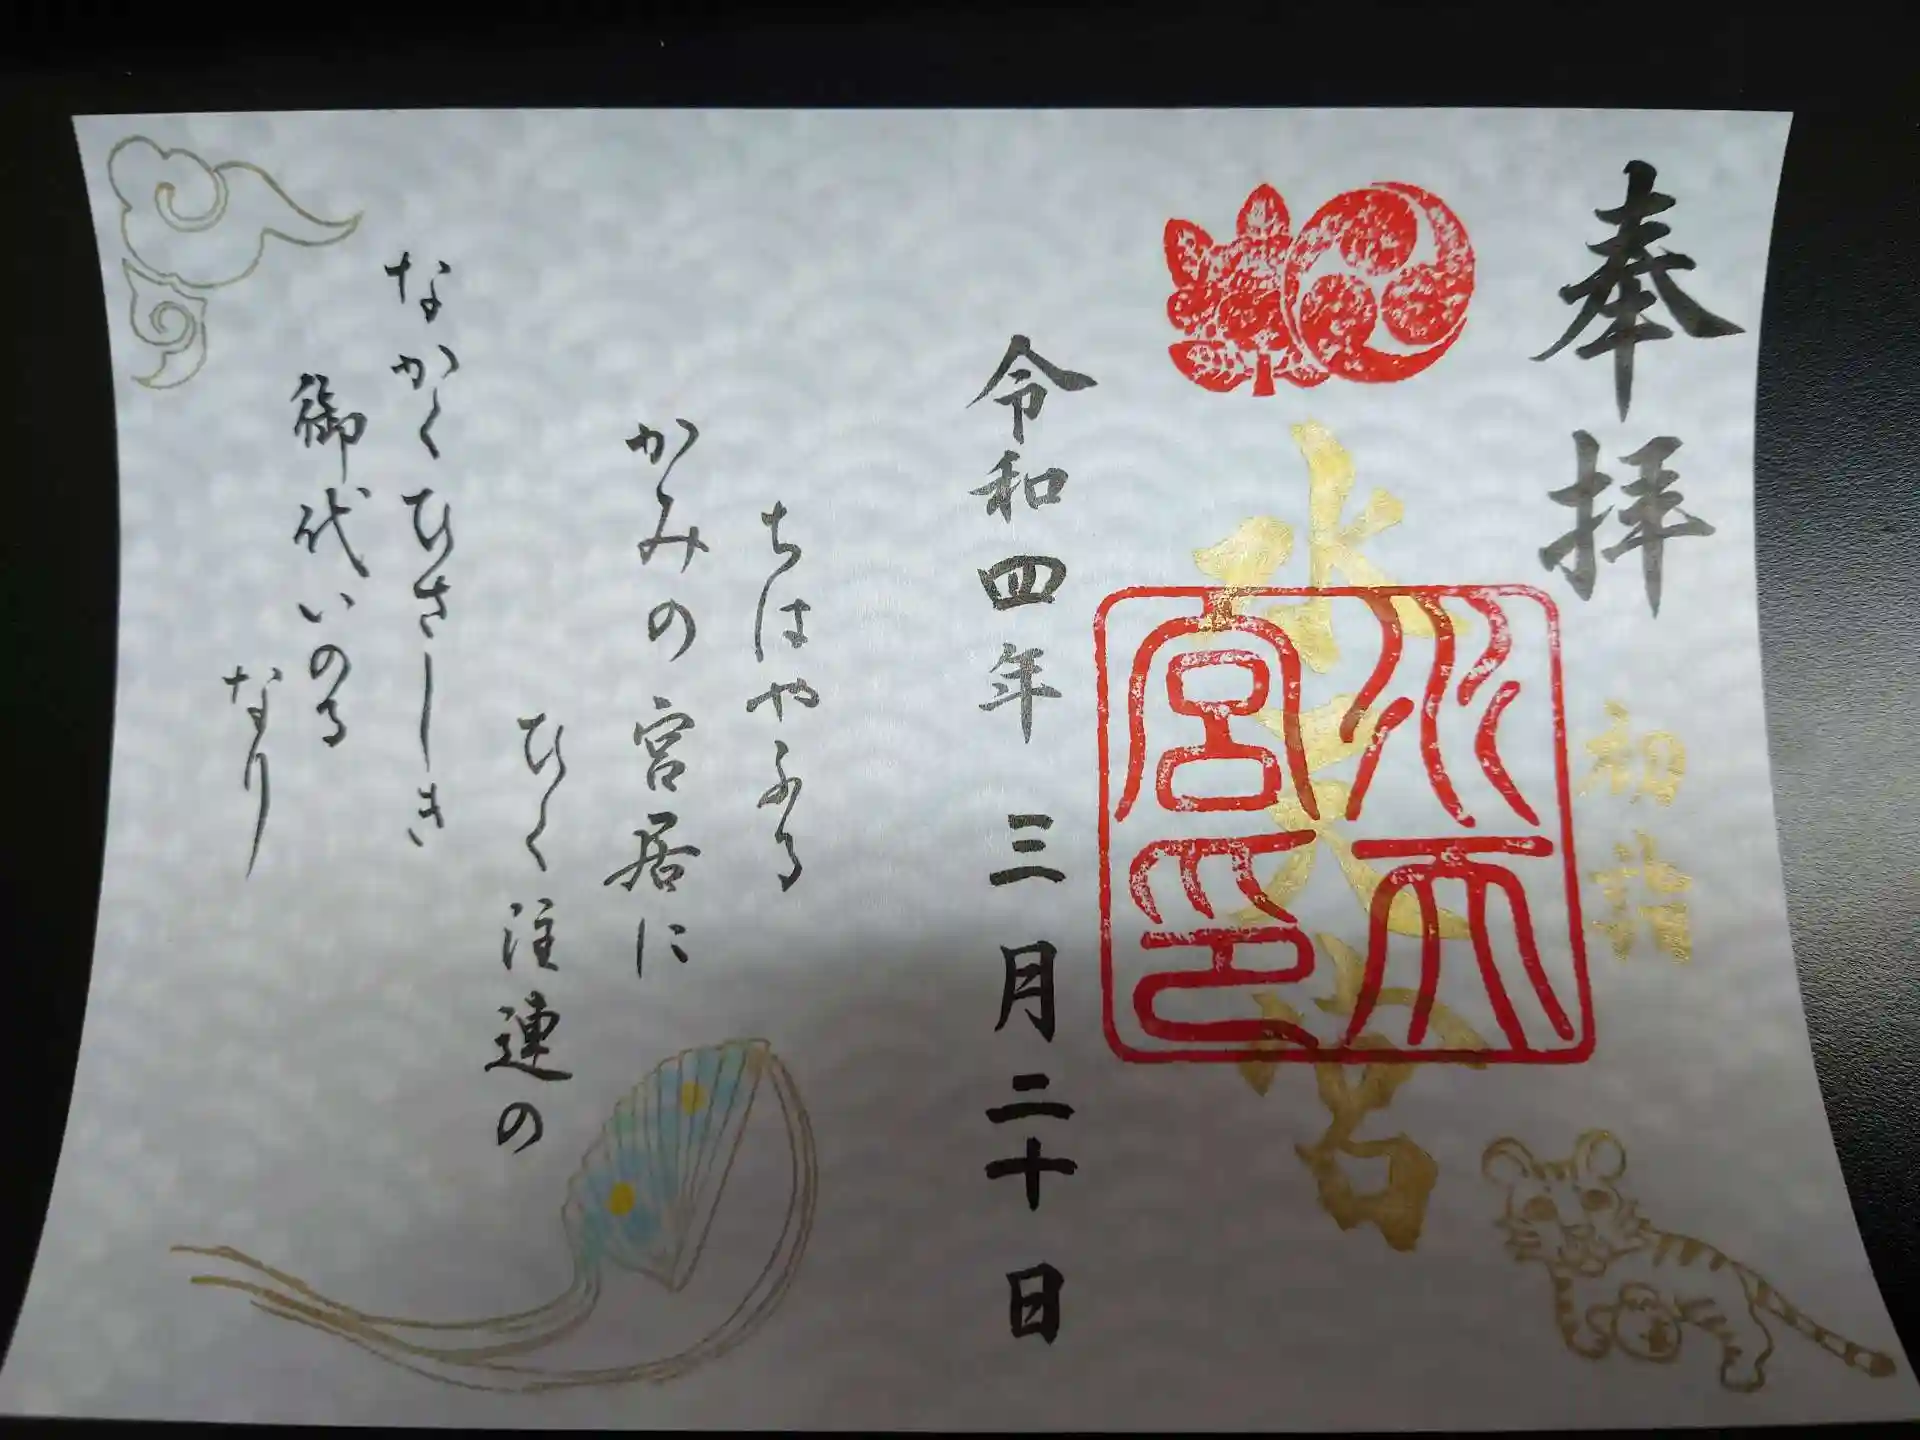 奉拝
初詣
水天宮
水天宮印
令和四年 三月二十日
ちはやふる
かみの宮居に
ひく注連の
なかくひさしき
御代いのる
なり